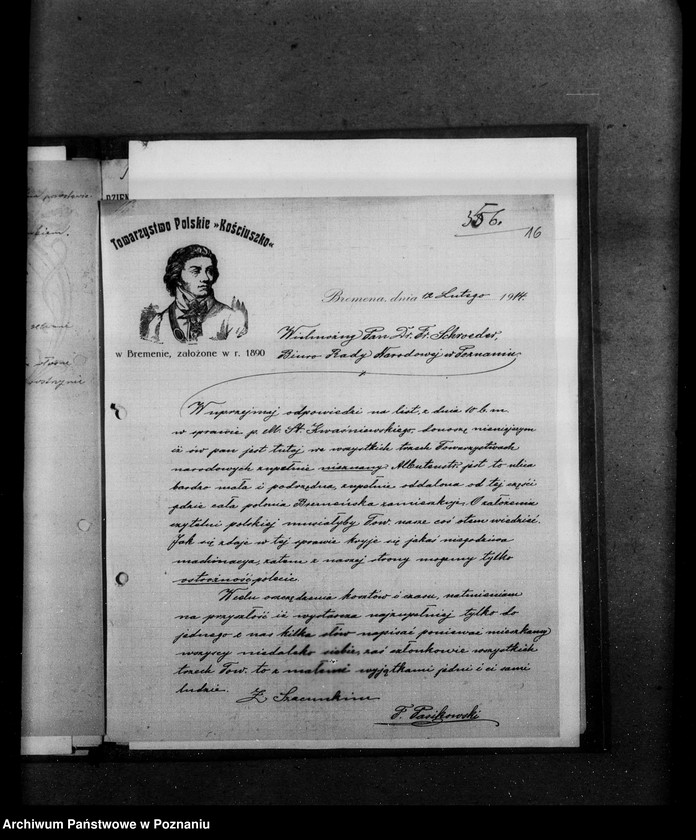 356.
16
Towarzystwo Polskie »Kościuszko«
w Bremenie, założone w r. 1890
Bremena, dnia 12 Lutego 1914.
Wielmożny Pan Dr. Fr. Schroeder,
Biuro Rady Narodowej w Poznaniu,
W uprzejmej odpowiedzi na list, z dnia 10 b.m.
w sprawie p. M. St. Kwaśniewskiego, donoszę niniejszym
iż ów pan jest tutaj we wszystkich trzech Towarzystwach
narodowych zupełnie nieznany. jest to ulica
bardzo mała i podrzędna, zupełnie oddalona od tej części
gdzie cała polonia Bremeńska zamieszkuje. O założeniu
czytelni polskiej musiałyby Tow. nasze coś otem wiedzieć.
Jak się zdaje w tej sprawie kryje się jakaś niegodziwa
machinacya, zatem z naszej strony możemy tylko
ostrożność polecić.
Wcelu oszczędzenia kosztów i czasu, nadmieniam
na przyszłość iż wystarcza najzupełniej tylko do
jednego z nas kilka słów napisać ponieważ mieszkamy
wszyscy niedaleko siebie, zaś członkowie wszystkich
trzech Tow. to z małemi wyjątkami jedni i ci sami
ludzie.
Z Szacunkiem
F. Pasikowski
DZIEN
Archiwum Państwowe w Poznaniu